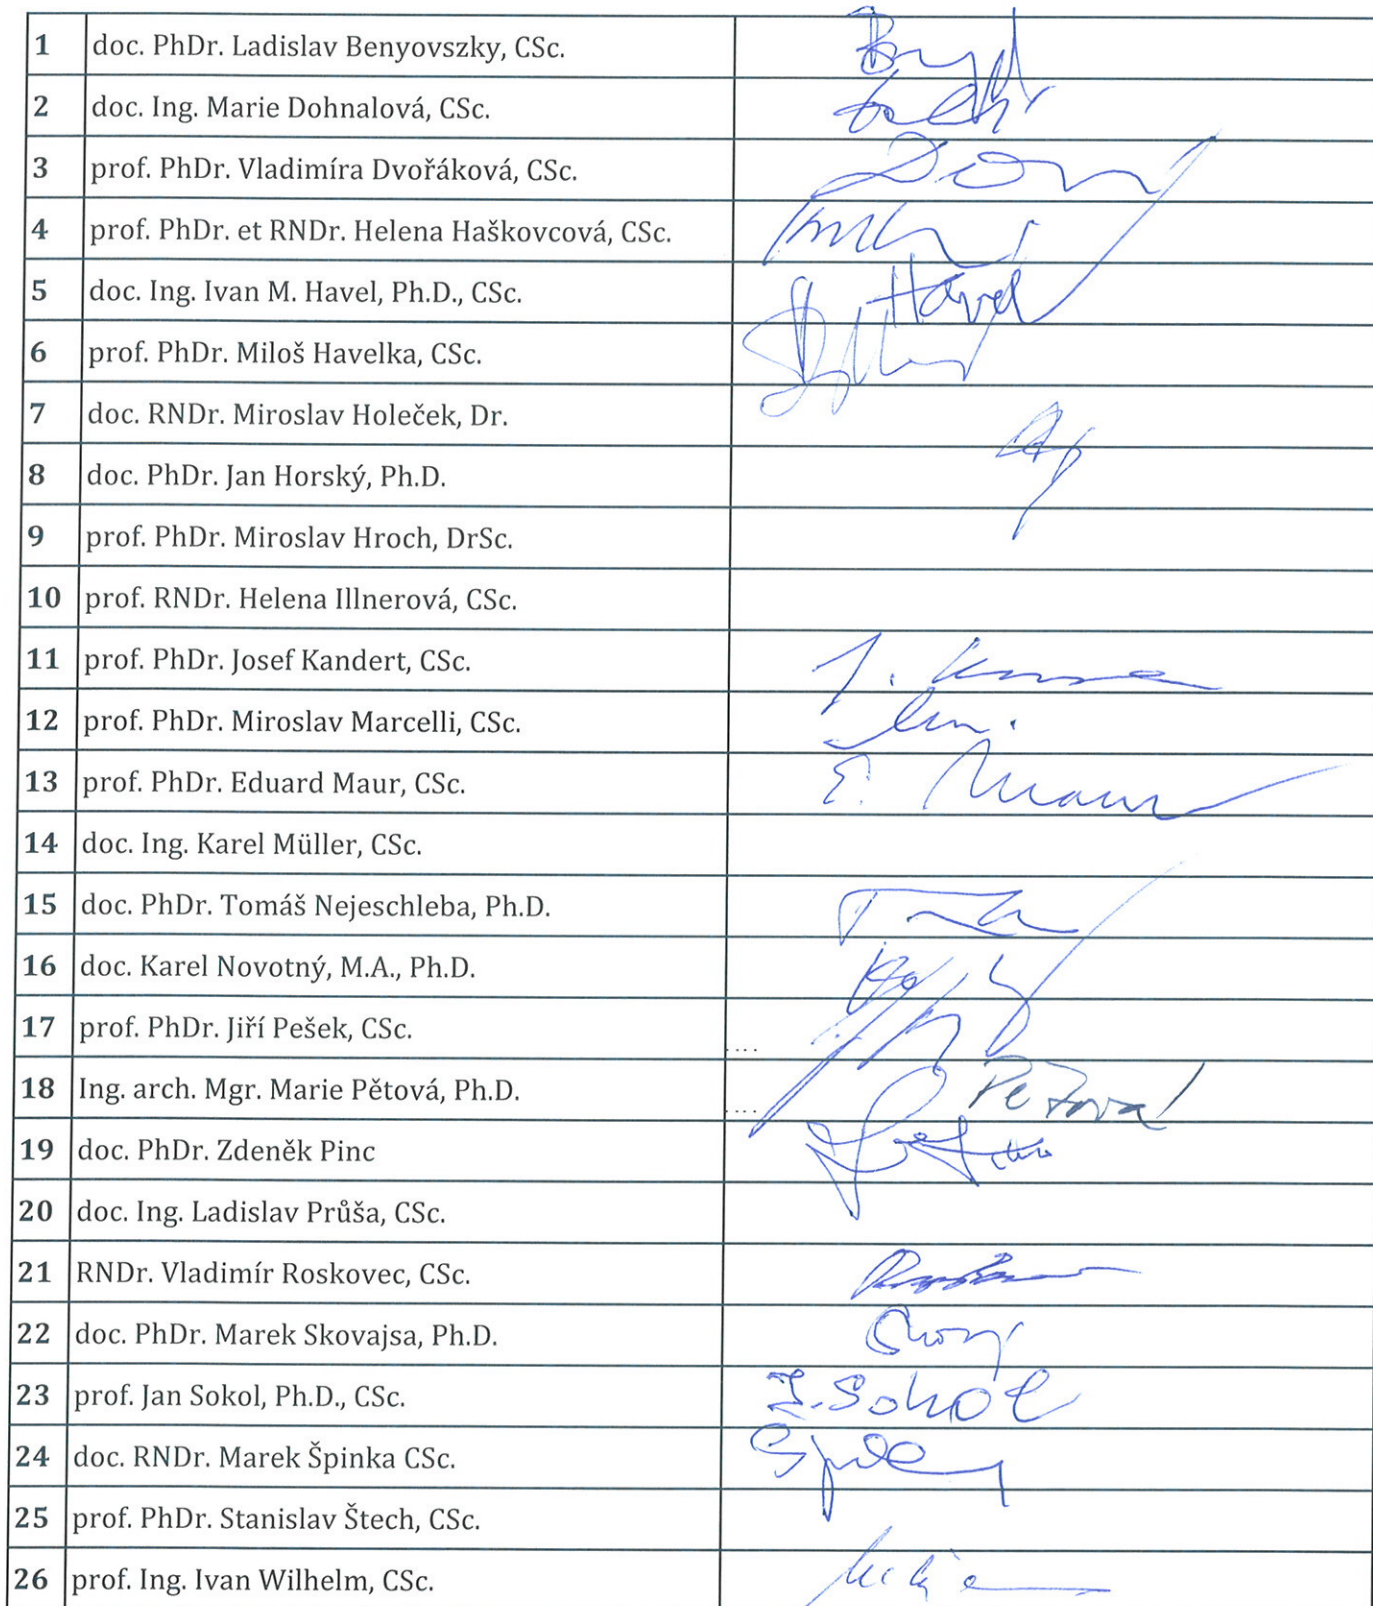 1 doc. PhDr. Ladislav Benyovszky, CSc.
2 doc. Ing. Marie Dohnalová, CSc.
3 prof. PhDr. Vladimíra Dvořáková, CSc.
4 prof. PhDr. et RNDr. Helena Haškovcová, CSc.
5 doc. Ing. Ivan M. Havel, Ph.D., CSc. Havel
6 prof. PhDr. Miloš Havelka, CSc.
7 doc. RNDr. Miroslav Holeček, Dr.
8 doc. PhDr. Jan Horský, Ph.D.
9 prof. PhDr. Miroslav Hroch, DrSc.
10 prof. RNDr. Helena Illnerová, CSc.
11 prof. PhDr. Josef Kandert, CSc.
12 prof. PhDr. Miroslav Marcelli, CSc.
13 prof. PhDr. Eduard Maur, CSc. E. Maur
14 doc. Ing. Karel Müller, CSc.
15 doc. PhDr. Tomáš Nejeschleba, Ph.D.
16 doc. Karel Novotný, M.A., Ph.D.
17 prof. PhDr. Jiří Pešek, CSc. ...
18 Ing. arch. Mgr. Marie Pětová, Ph.D. .... Pětová
19 doc. PhDr. Zdeněk Pinc
20 doc. Ing. Ladislav Průša, CSc.
21 RNDr. Vladimír Roskovec, CSc.
22 doc. PhDr. Marek Skovajsa, Ph.D.
23 prof. Jan Sokol, Ph.D., CSc. J. Sokol
24 doc. RNDr. Marek Špinka CSc.
25 prof. PhDr. Stanislav Štech, CSc.
26 prof. Ing. Ivan Wilhelm, CSc.